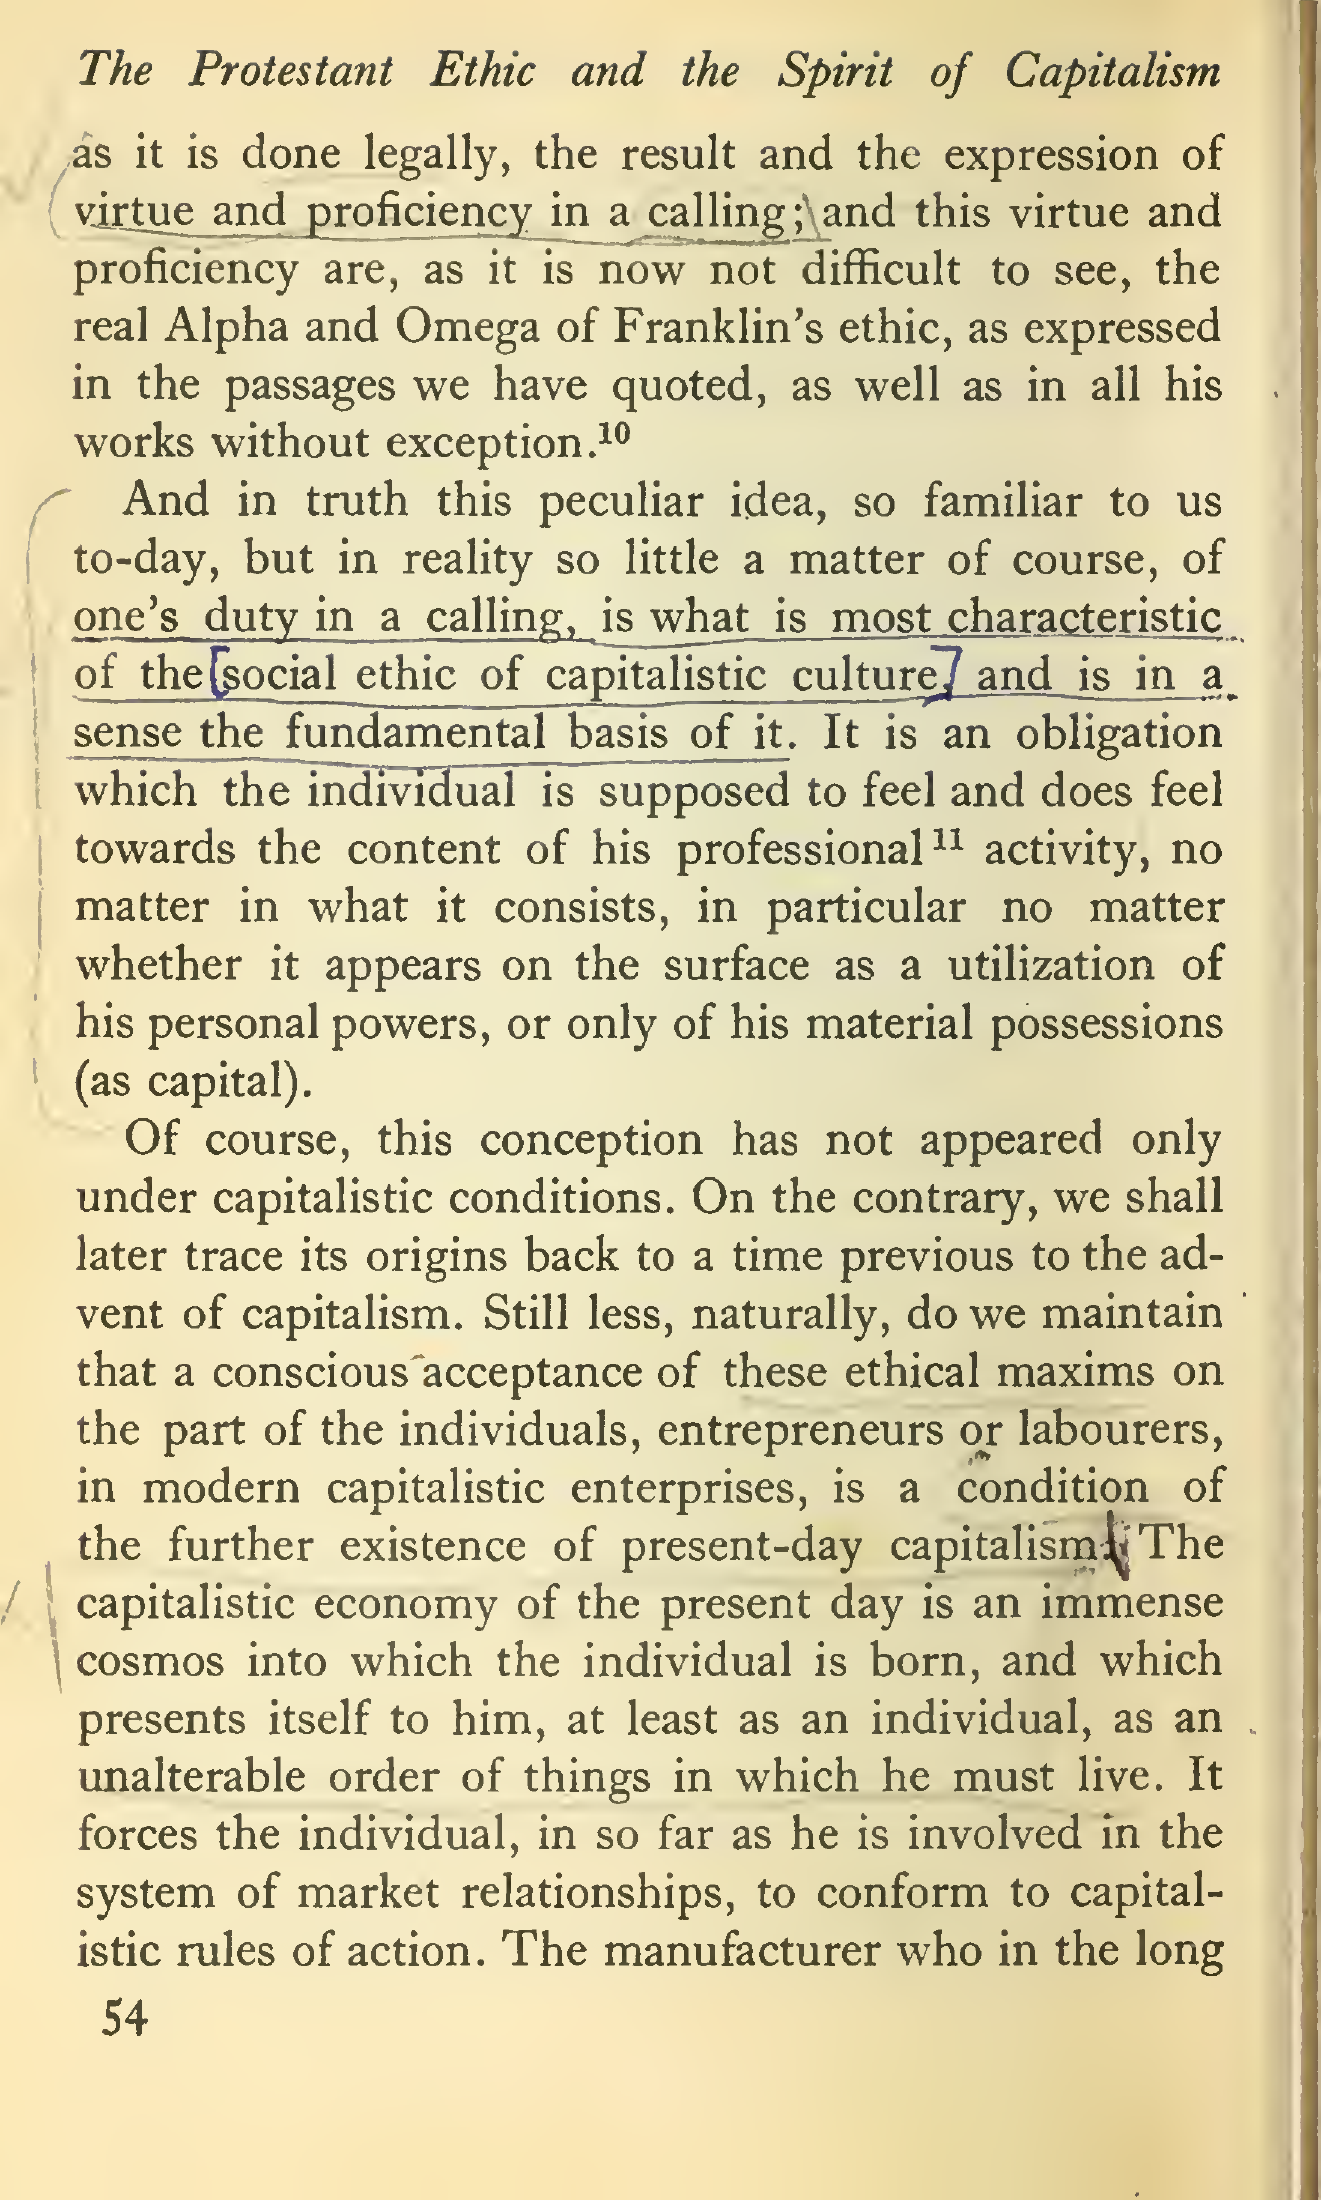 The Protestant Ethic and the Spirit of Capitalism
as it is done legally, the result and the expression of
virtue and proficiency in a calling; and this virtue and
proficiency are, as it is now not difficult to see, the
real Alpha and Omega of Franklin's ethic, as expressed
in the passages we have quoted, as well as in all his
works without exception.¹⁰
And in truth this peculiar idea, so familiar to us
to-day, but in reality so little a matter of course, of
one's duty in a calling, is what is most characteristic
of the [social ethic of capitalistic culture,] and is in a
sense the fundamental basis of it. It is an obligation
which the individual is supposed to feel and does feel
towards the content of his professional¹¹ activity, no
matter in what it consists, in particular no matter
whether it appears on the surface as a utilization of
his personal powers, or only of his material possessions
(as capital).
Of course, this conception has not appeared only
under capitalistic conditions. On the contrary, we shall
later trace its origins back to a time previous to the ad-
vent of capitalism. Still less, naturally, do we maintain
that a conscious acceptance of these ethical maxims on
the part of the individuals, entrepreneurs or labourers,
in modern capitalistic enterprises, is a condition of
the further existence of present-day capitalism. The
capitalistic economy of the present day is an immense
cosmos into which the individual is born, and which
presents itself to him, at least as an individual, as an
unalterable order of things in which he must live. It
forces the individual, in so far as he is involved in the
system of market relationships, to conform to capital-
istic rules of action. The manufacturer who in the long
54